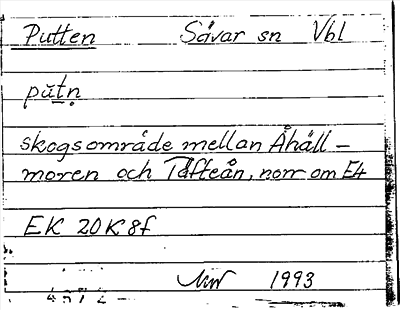 Putten Sävar sn Vbl
pŭtṇ
skogsområde mellan Åhäll-
moren och Täfteån, norr om E4
EK 20K8f
1993